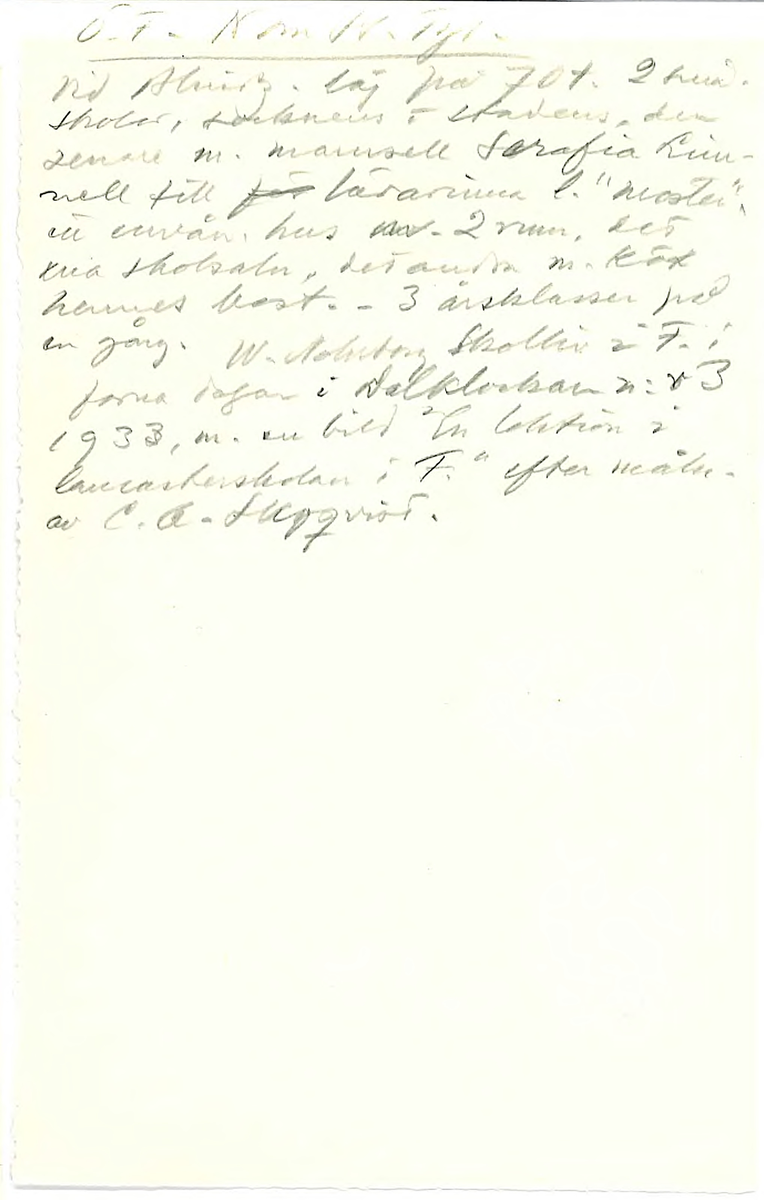 Ö. F. Kom
Vid låg på 70 t. 2 små
skolor, socknens o stadens, den
senare m. mamsell Serafia Lin-
nell till lärarinna l. "moster",
ett envån. hus m. 2 rum, det
ena skolsaln, det andra m. kök
hennes bost. - 3 årsklasser på
en gång. W. Skolliv i F. i
forna dagar i Dalklockan n:r 3
1933, m. en bild "En lektion i
lancasterskolan i F." efter måln.
av C. A. Skogqvist.